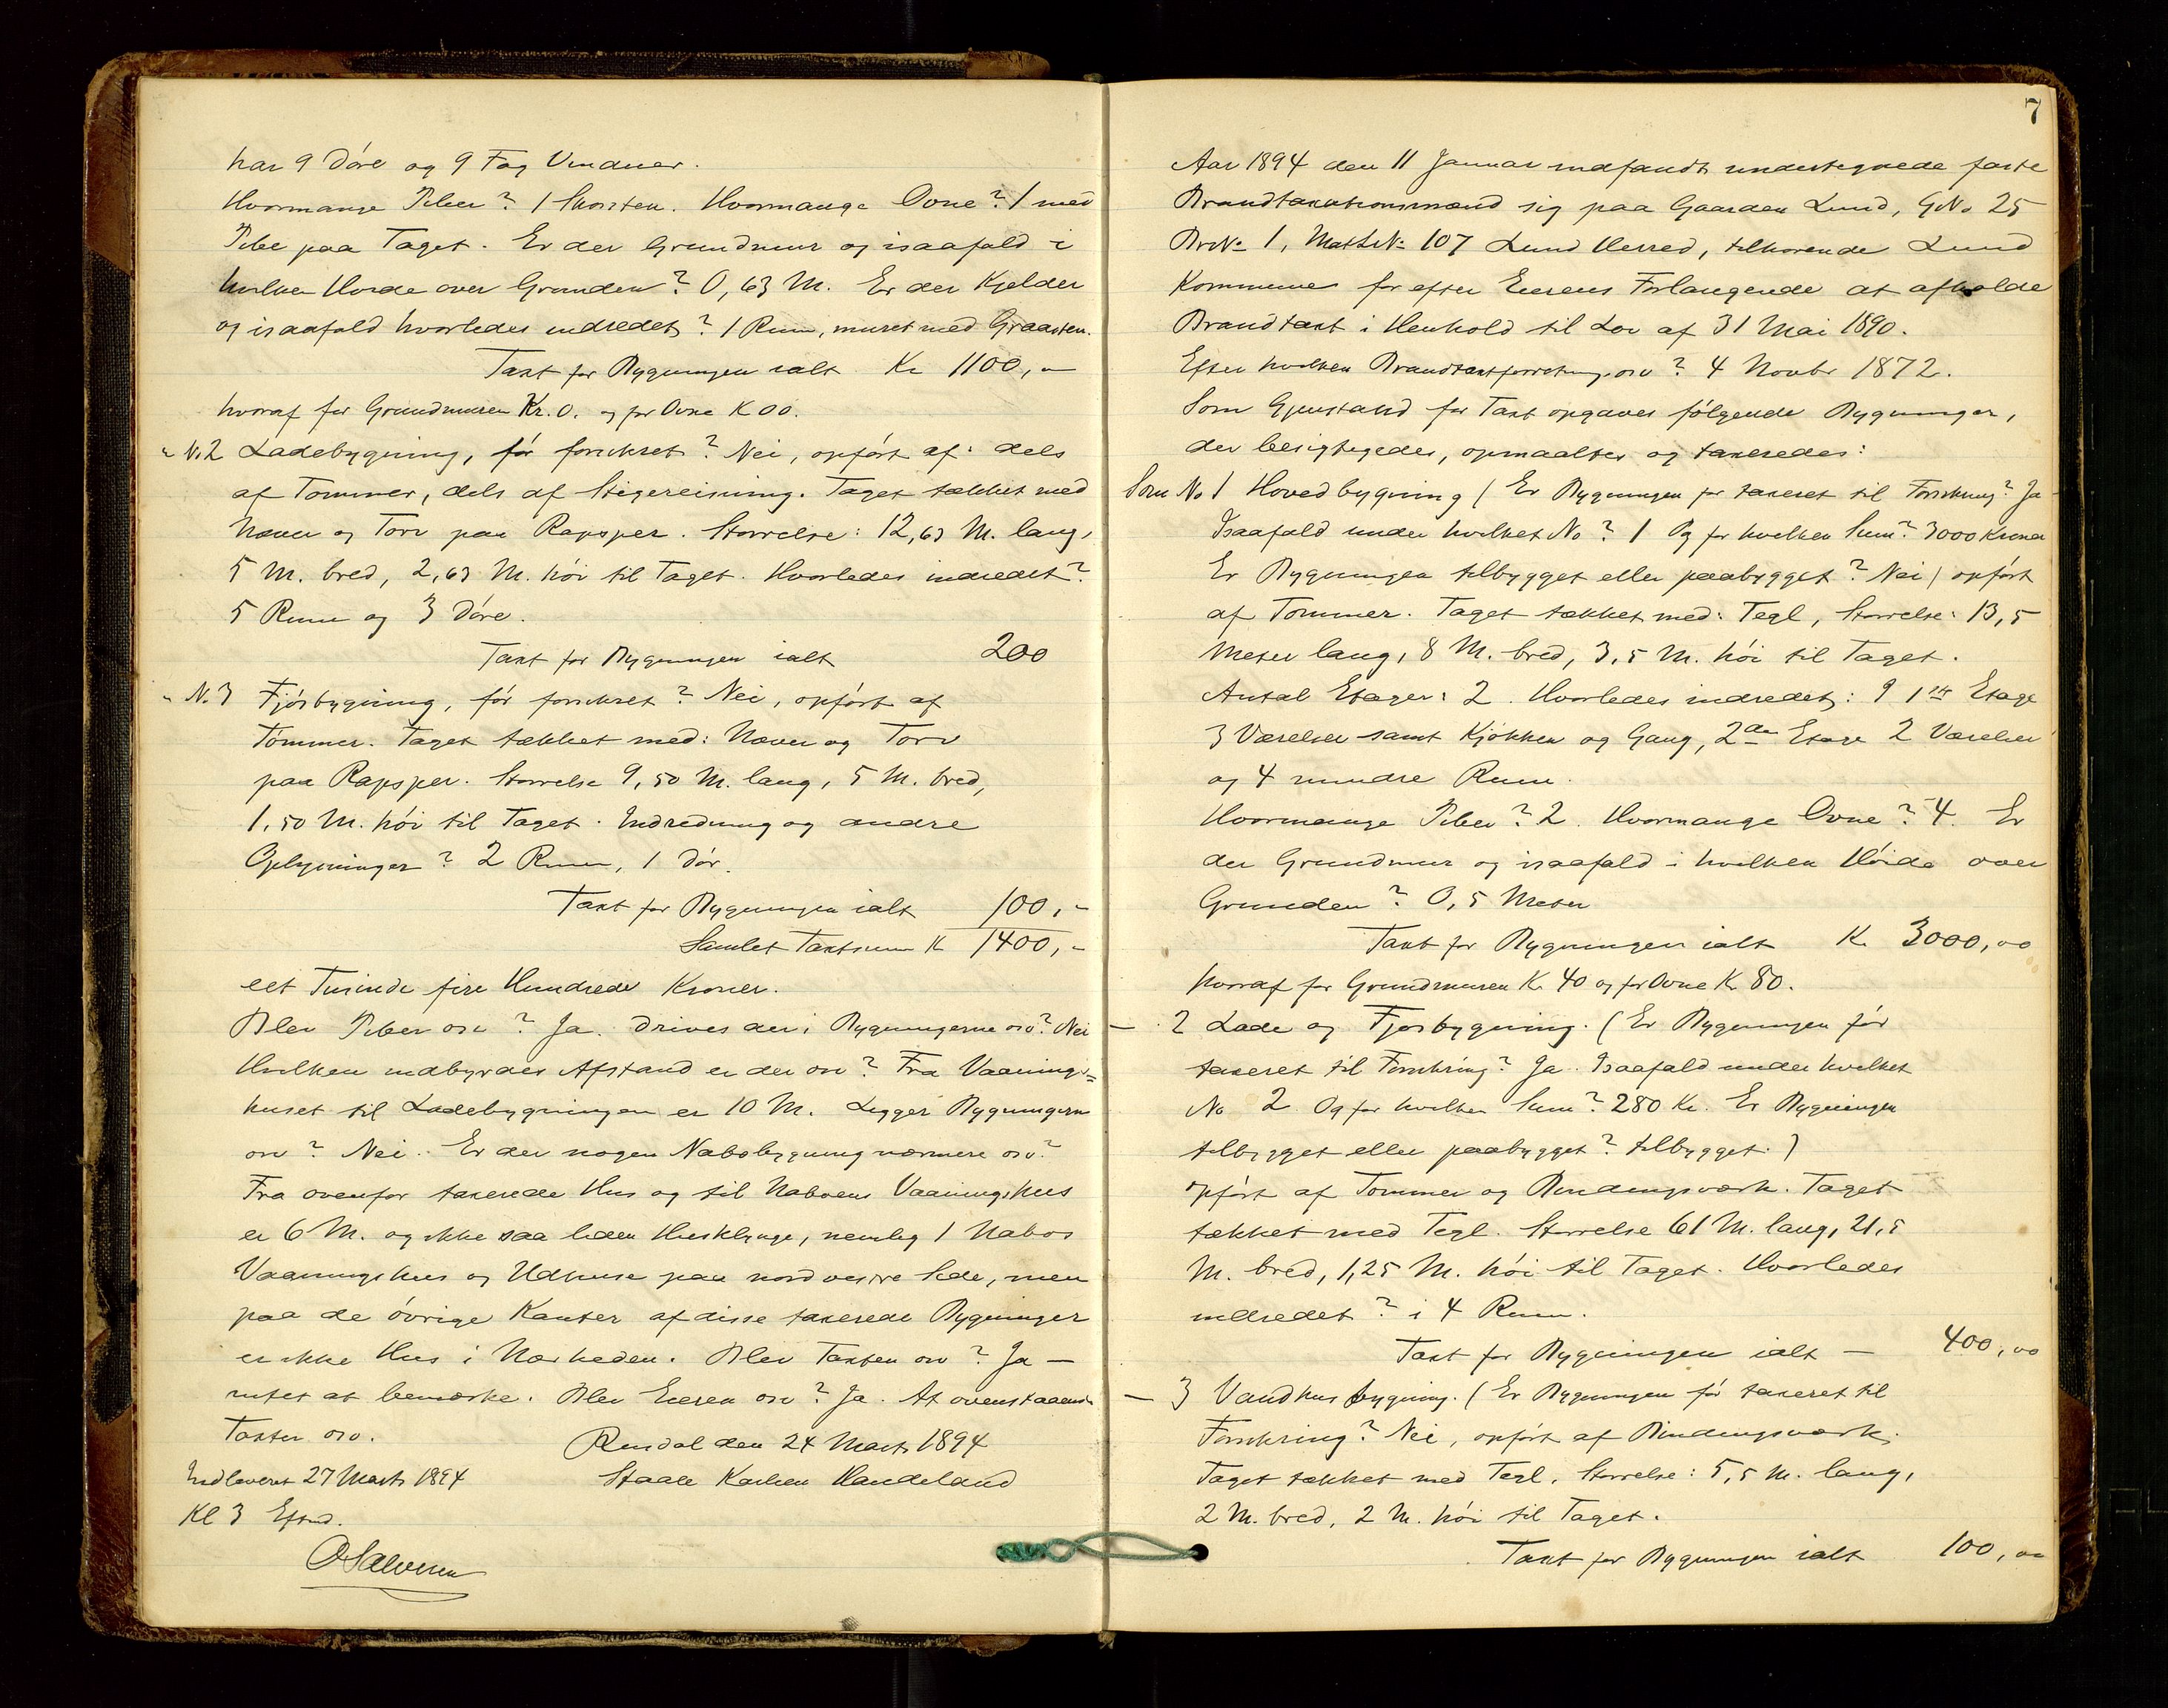 har 9 Döre og 9 Fag Vinduer.
Hvormange Piber? 1 Skorsten. Hvormange Ovne? 1 med
Pibe paa Taget. Er der Grundmur og isaafald i
hvilken Hoide over Grunden? 0,63 M. Er der Kjelder
og isaafald hvorledes indredet? 1 Rum, muret med Graasten.
Taxt for Bygningen ialt Kr 1100,-
hvoraf for Grundmuren Kr. 0. og for Ovne K 00.
" N. 2 Ladebygning, för forsikret? Nei, opfört af: dels
af Tømmer, dels af Stigereisning. Taget tækket med
Næver og Torv paa Rapsper. Størrelse: 12,63 M. lang,
5 M. bred, 2,63 M. höi til Taget. Hvorledes indredet?
5 Rum og 3 Döre.
Taxt for Bygningen ialt 200
" N. 3 Fjösbygning, för forsikret? Nei, opfört af
Tömmer. Taget tækket med: Næver og Torv
paa Rapsper. Størrelse 9,50 M. lang, 5 M. bred,
1,50 M. höi til Taget. Indredning og andre
Oplysninger? 2 Rum, 1 Dör.
Taxt for Bygningen ialt 100,-
Samlet Taxtsum K 1400,-
eet Tusinde fire Hundrede Kroner.
Blev Piber osv? Ja. Drives der i Bygningerne osv? Nei
Hvilken indbyrdes Afstand er der osv? Fra Vaanings=
huset til Ladebygningen er 10 M. Ligger Bygningerne
osv? Nei. Er der nogen Nabobygning nærmere osv?
Fra ovenfor taxerede Hus og til Naboens Vaaningshus
er 6 M. og ikke saa liden Husklynge, nemlig 1 Nabos
Vaaningshus og Udhuse paa nordvestre Side, men
paa de övrige Kanter af disse taxerede Bygninger
er ikke Hus i Nærheden. Blev Taxten osv? Ja —
intet at bemærke. Blev Eieren osv? Ja. At ovenstaaende
Taxter osv.
Rusdal den 24 Marts 1894
Indleveret 27 Marts 1894
Staale Handeland
Kl 3 Eftmd.
OSalvesen
7
Aar 1894 den 11 Januar indfandt undertegnede faste
Brandtaxationsmænd sig paa Gaarden Lund, GNo 25
BrNo 1, MattrNo 107 Lund Herred, tilhørende Lund
Kommune for efter Eierens Forlangende at afholde
Brandtaxt i Henhold til Lov af 31 Mai 1890.
Efter hvilken Brandtaxtforretning osv? 4 Novbr 1872.
Som Gjenstand for Taxt opgaves følgende Bygninger,
der besigtigedes, opmaaltes og taxeredes:
Som No 1 Hovedbygning (Er Bygningen før taxeret til Forsikring? Ja
Isaafald under hvilket No? 1 Og for hvilken Sum? 3000 Kroner
Er Bygningen tilbygget eller paabygget? Nei) opfört
af Tømmer. Taget tækket med: Tegl, Størrelse: 13,5
Meter lang, 8 M. bred, 3,5 M. höi til Taget.
Antal Etager: 2. Hvorledes indredet: I 1ste Etage
3 Værelser samt Kjøkken og Gang, 2den Etage 2 Værelser
og 4 mindre Rum.
Hvormange Piber? 2. Hvormange Ovne? 4. Er
der Grundmur og isaafald i hvilken Höide over
Grunden? 0,5 Meter
Taxt for Bygningen ialt K. 3000,00
hvoraf for Grundmuren K 40 og for Ovne K 80.
— 2 Lade og Fjøsbygning. (Er Bygningen för
taxeret til Forsikring? Ja. Isaafald under hvilket
No 2 Og for hvilken Sum? 280 Kr. Er Bygningen
tilbygget eller paabygget? tilbygget.)
opfört af Tømmer og Bindingsværk. Taget
tækket med Tegl. Størrelse 61 M. lang, 21,5
M. bred, 1,25 M. höi til Taget. Hvorledes
indredet? i 4 Rum.
Taxt for Bygningen ialt — 400,00
— 3 Vandhusbygning. (Er Bygningen för taxeret til
Forsikring? Nei, opfört af Bindingsværk.
Taget tækket med Tegl, Størrelse: 5,5 M. lang,
2 M. bred, 2 M. höi til Taget.
Taxt for Bygningen ialt 100,00